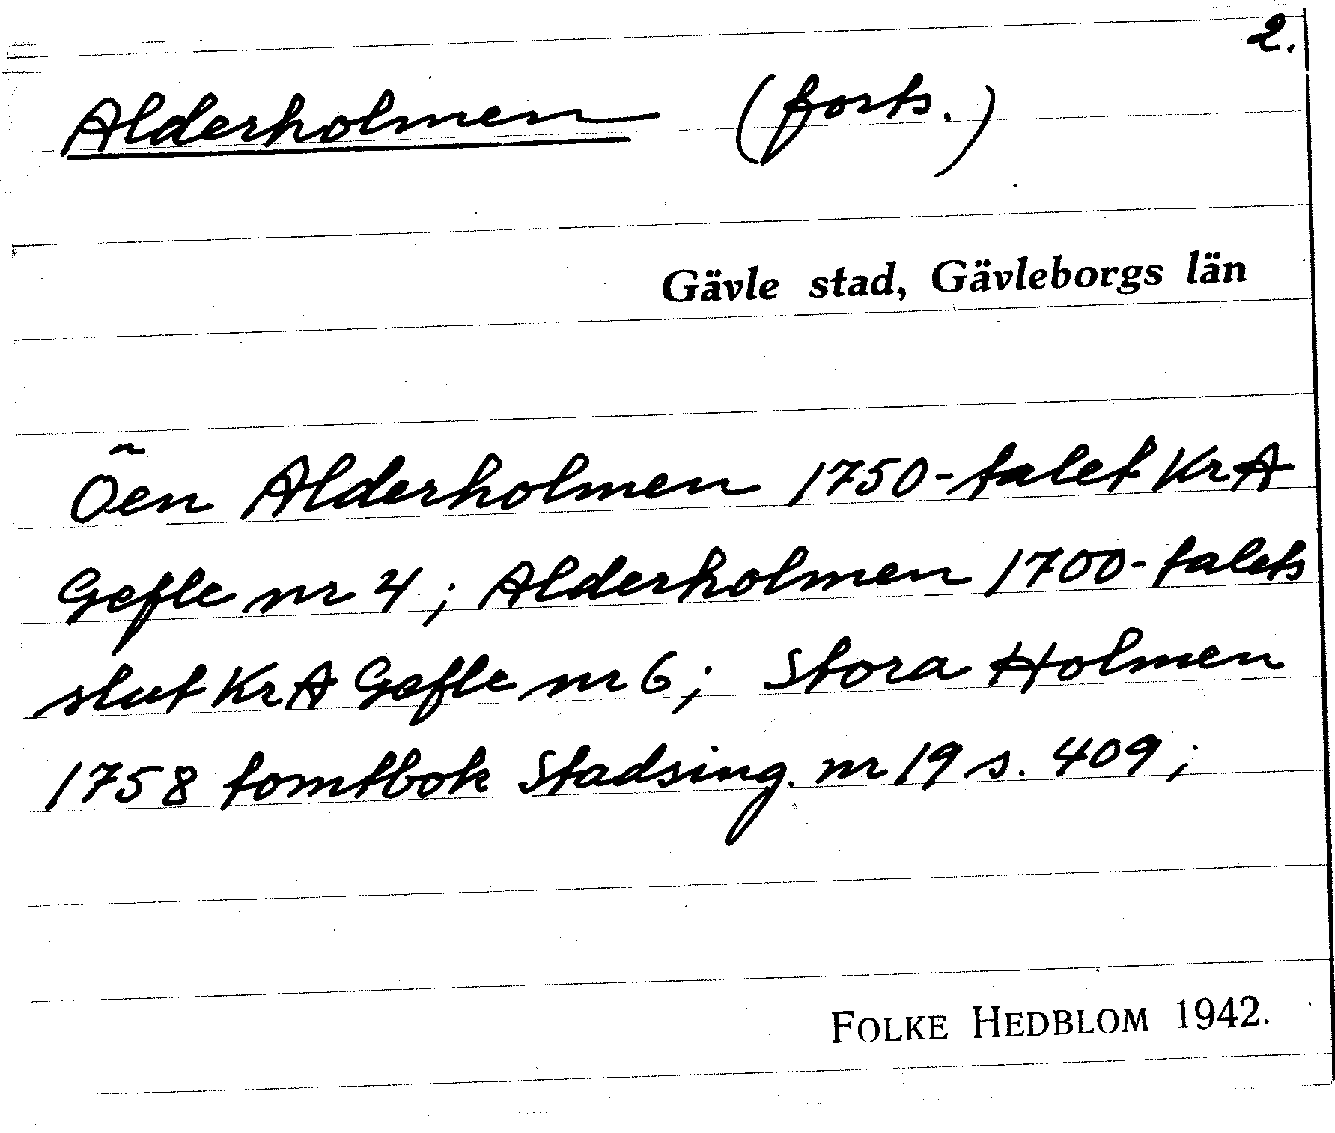 2.
Alderholmen (forts.)
Gävle stad, Gävleborgs län
Öen Alderholmen 1750-talet KrA
Gefle nr 4; Alderholmen 1700-talets
slut KrA Gefle nr 6; Stora Holmen
1758 tomtbok Stadsing. nr 19 s. 409;
FOLKE HEDBLOM 1942.